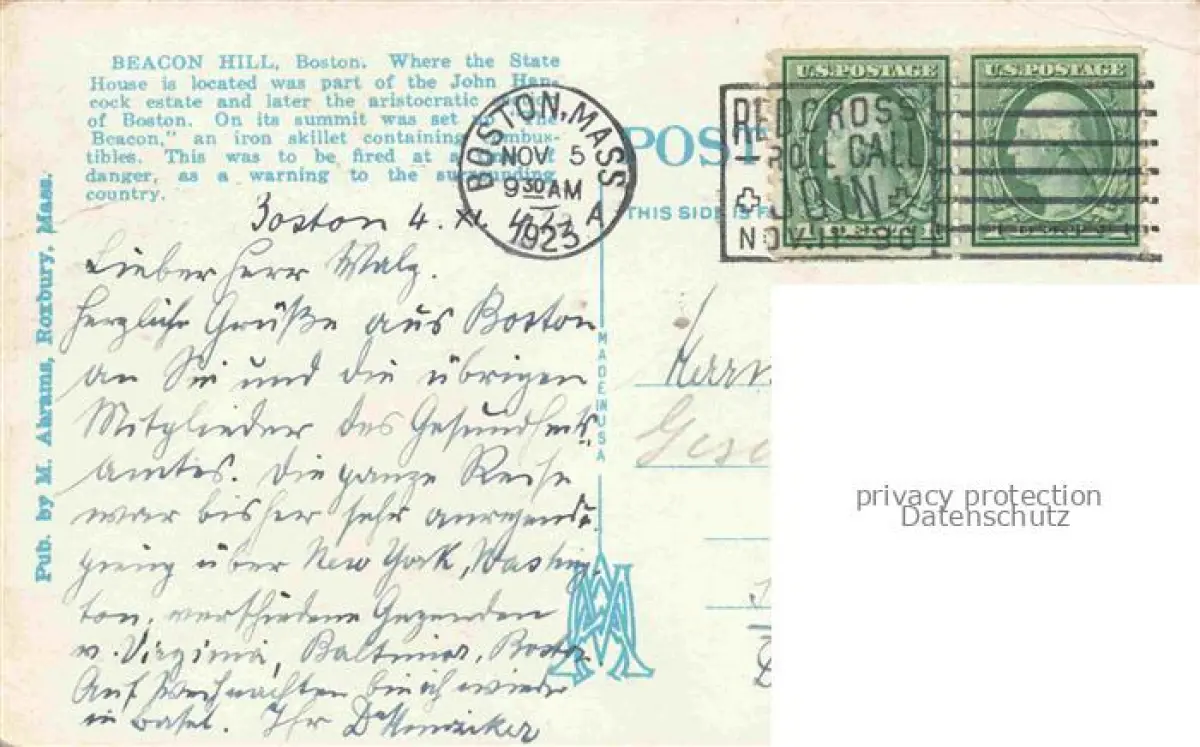 BEACON HILL, Boston. Where the State
House is located was part of the John Han-
cock estate and later the aristocratic
of Boston. On its summit was set
Beacon," an iron skillet containing combus-
tibles. This was to be fired at a
danger, as a warning to the surrounding
country.
Pub. by M. Abrams, Roxbury, Mass.
BOSTON, MASS
NOV 5
930 AM
1923
A
POST
THIS SIDE IS F
U.S. POSTAGE
U.S. POSTAGE
RED CROSS
ROLL CALL
JOIN
NOV. 11
MADE IN USA
Boston 4. XI.
Lieber Herr Walz.
Herzliche Grüße aus Boston
an Sie und die übrigen
Mitglieder des Gesundheits
amtes. Die ganze Reise
war bisher sehr anregend,
ging über New York, Washing-
ton, verschiedene Gegenden
v. Virginia, Baltimor, Boston.
Auf Weihnachten bin ich wieder
in Basel. Ihr Dr
Herrn
privacy protection
Datenschutz